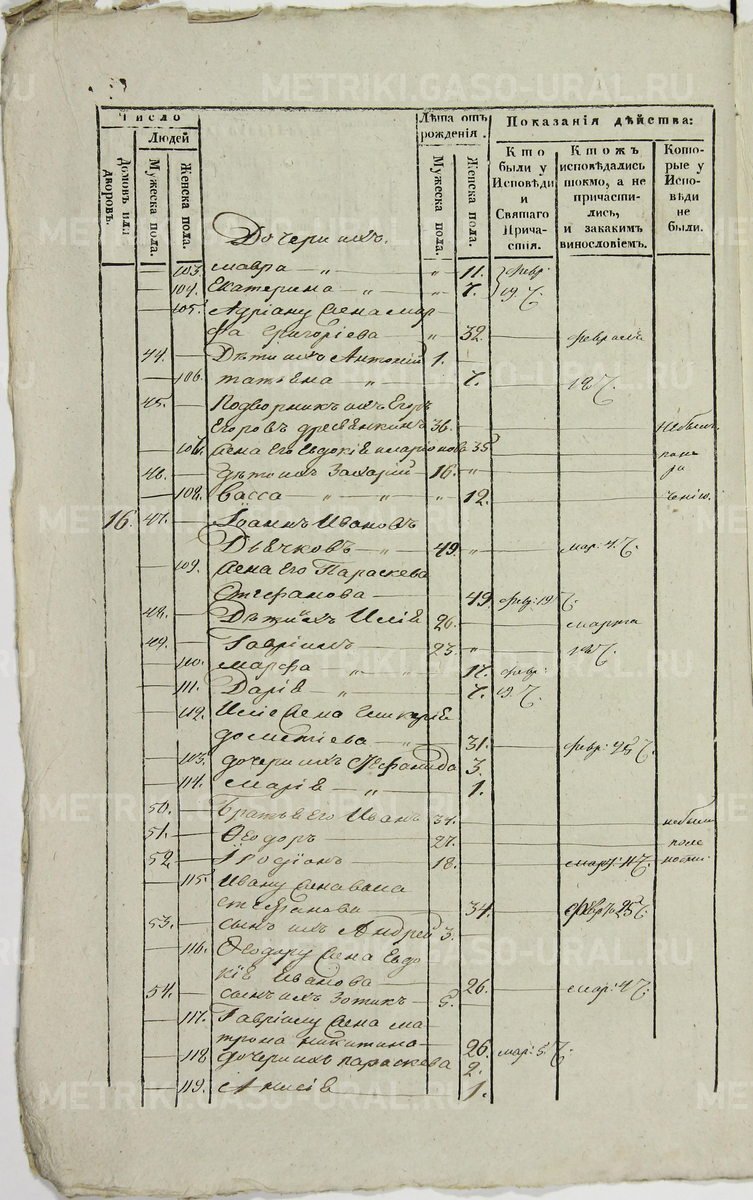 Число
Людей
Домовъ или дворовъ.
Мужеска пола.
Женска пола.
Лѣта отъ рожденія.
Мужеска пола.
Женска пола.
Показанія дѣйства:
Кто были у Исповѣди и Святаго Причастія.
Ктожъ исповѣдались токмо, а не причастились, и закакимъ винословіемъ.
Которые у Исповѣди не были.
Дочери ихъ.
103. Мавра — „ — „ 11. февр:
104. Екатерина — „ — „ 7. 19.
105. Адріану жена Мар
фа Григоріева — „ 32. февраля
44. Дѣти ихъ Антоній 1.
106. Татьяна „ 7. 18
45. Подворникъ ихъ Егоръ
Егоровъ 36. не былъ
107. жена его Евдокія 35
46. дѣти ихъ Захарій — 16. „
108. Васса — „ — „ „ 12. ченію.
16. 47. Іоаннъ Ивановъ
Дьячковъ — „ 49. „ мар: 4.
109. жена его Параскева
Стефанова — 49. февр: 19
48. Дѣти ихъ Илія 26. марта
49. Гавріилъ — 23. „
110. Марфа „ „ 17. февр:
111. Дарія — „ 7. 19.
112. Иліе жена Гликерія
Дометіева — „ 31. февр: 25
113. дочери ихъ Стефанида 3.
114. Марія — „ 1.
50. Братья его Иванъ 34. небыли
51. Ѳеодоръ 27. поле
52. Іродіонъ — 18.
115. Ивану жена Анна
Стефанова — 34. февр. 25
53. сынъ ихъ Андрей 3.
116. Ѳеодору жена Евдо
кія Иванова — 26. мар: 4
54. сынъ ихъ Зотикъ — 5.
117. Гавріилу жена Ма
трона Никитина — 26. мар: 5.
118 дочери ихъ Параскева 2.
119. Анисія — 1.
METRIKI.GASO-URAL.RU